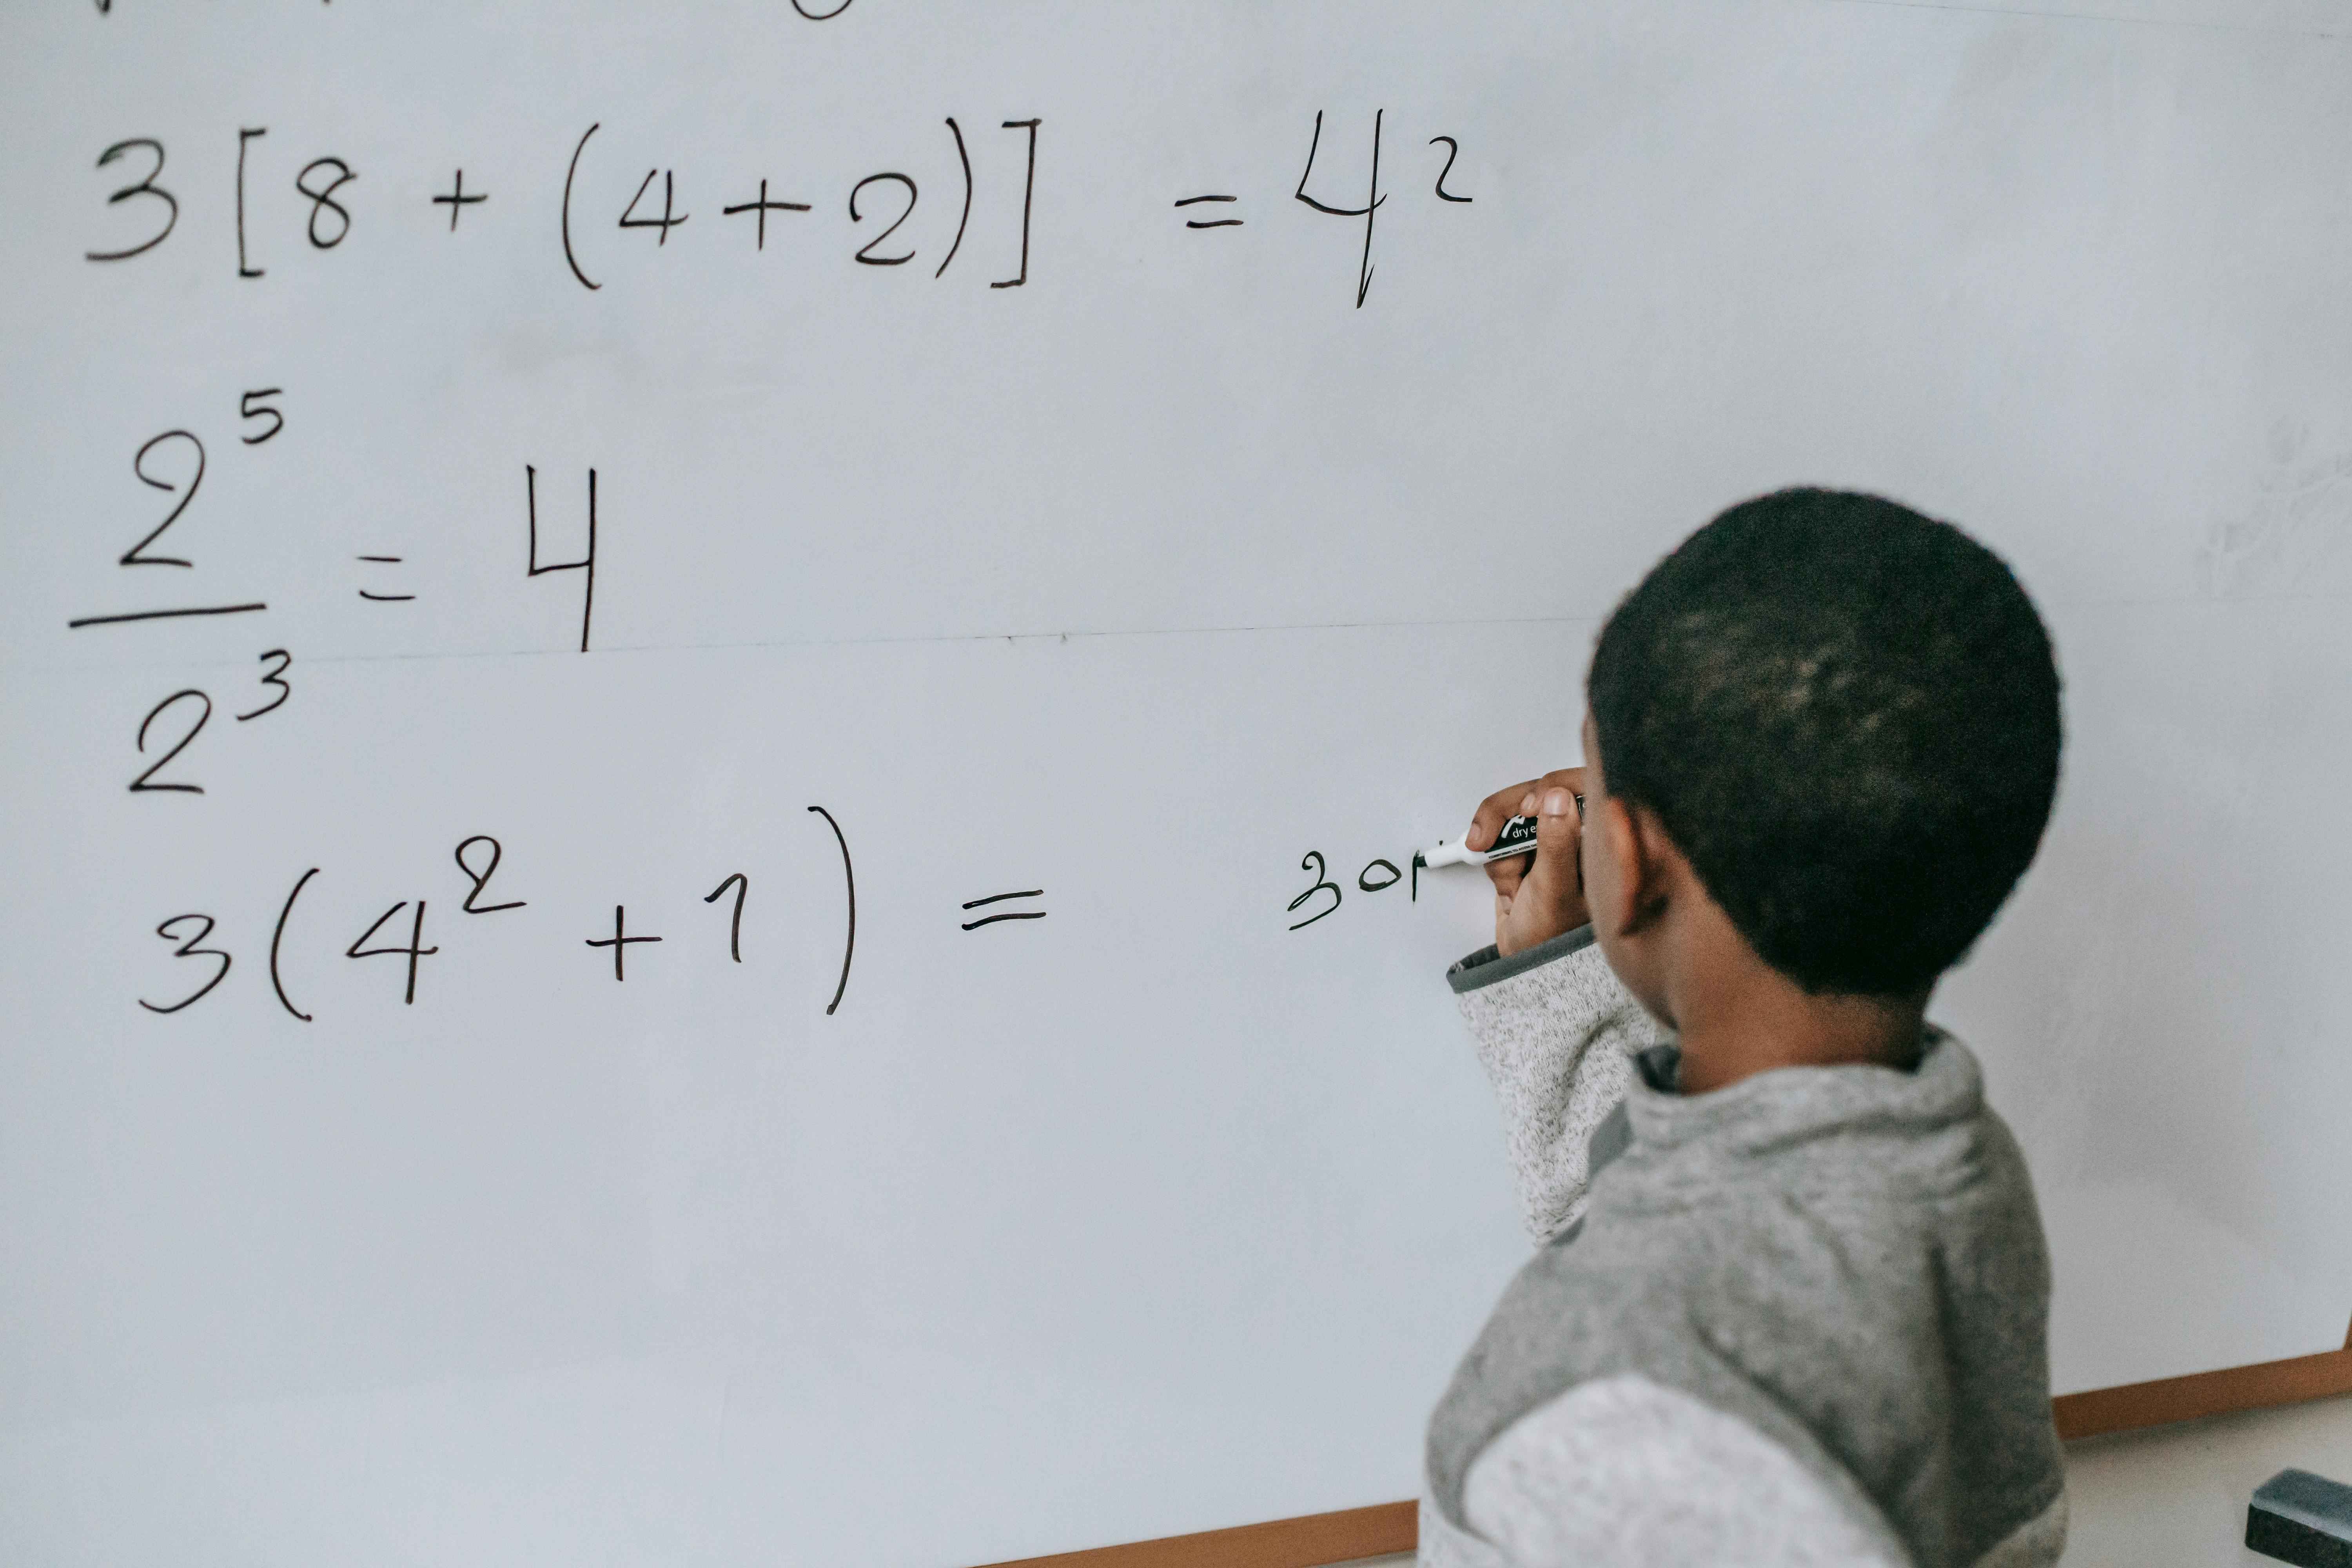 3 [ 8 + ( 4 + 2 ) ] = 42
2⁵
— = 4
2³
3 ( 4² + 1 ) = 30
dry e